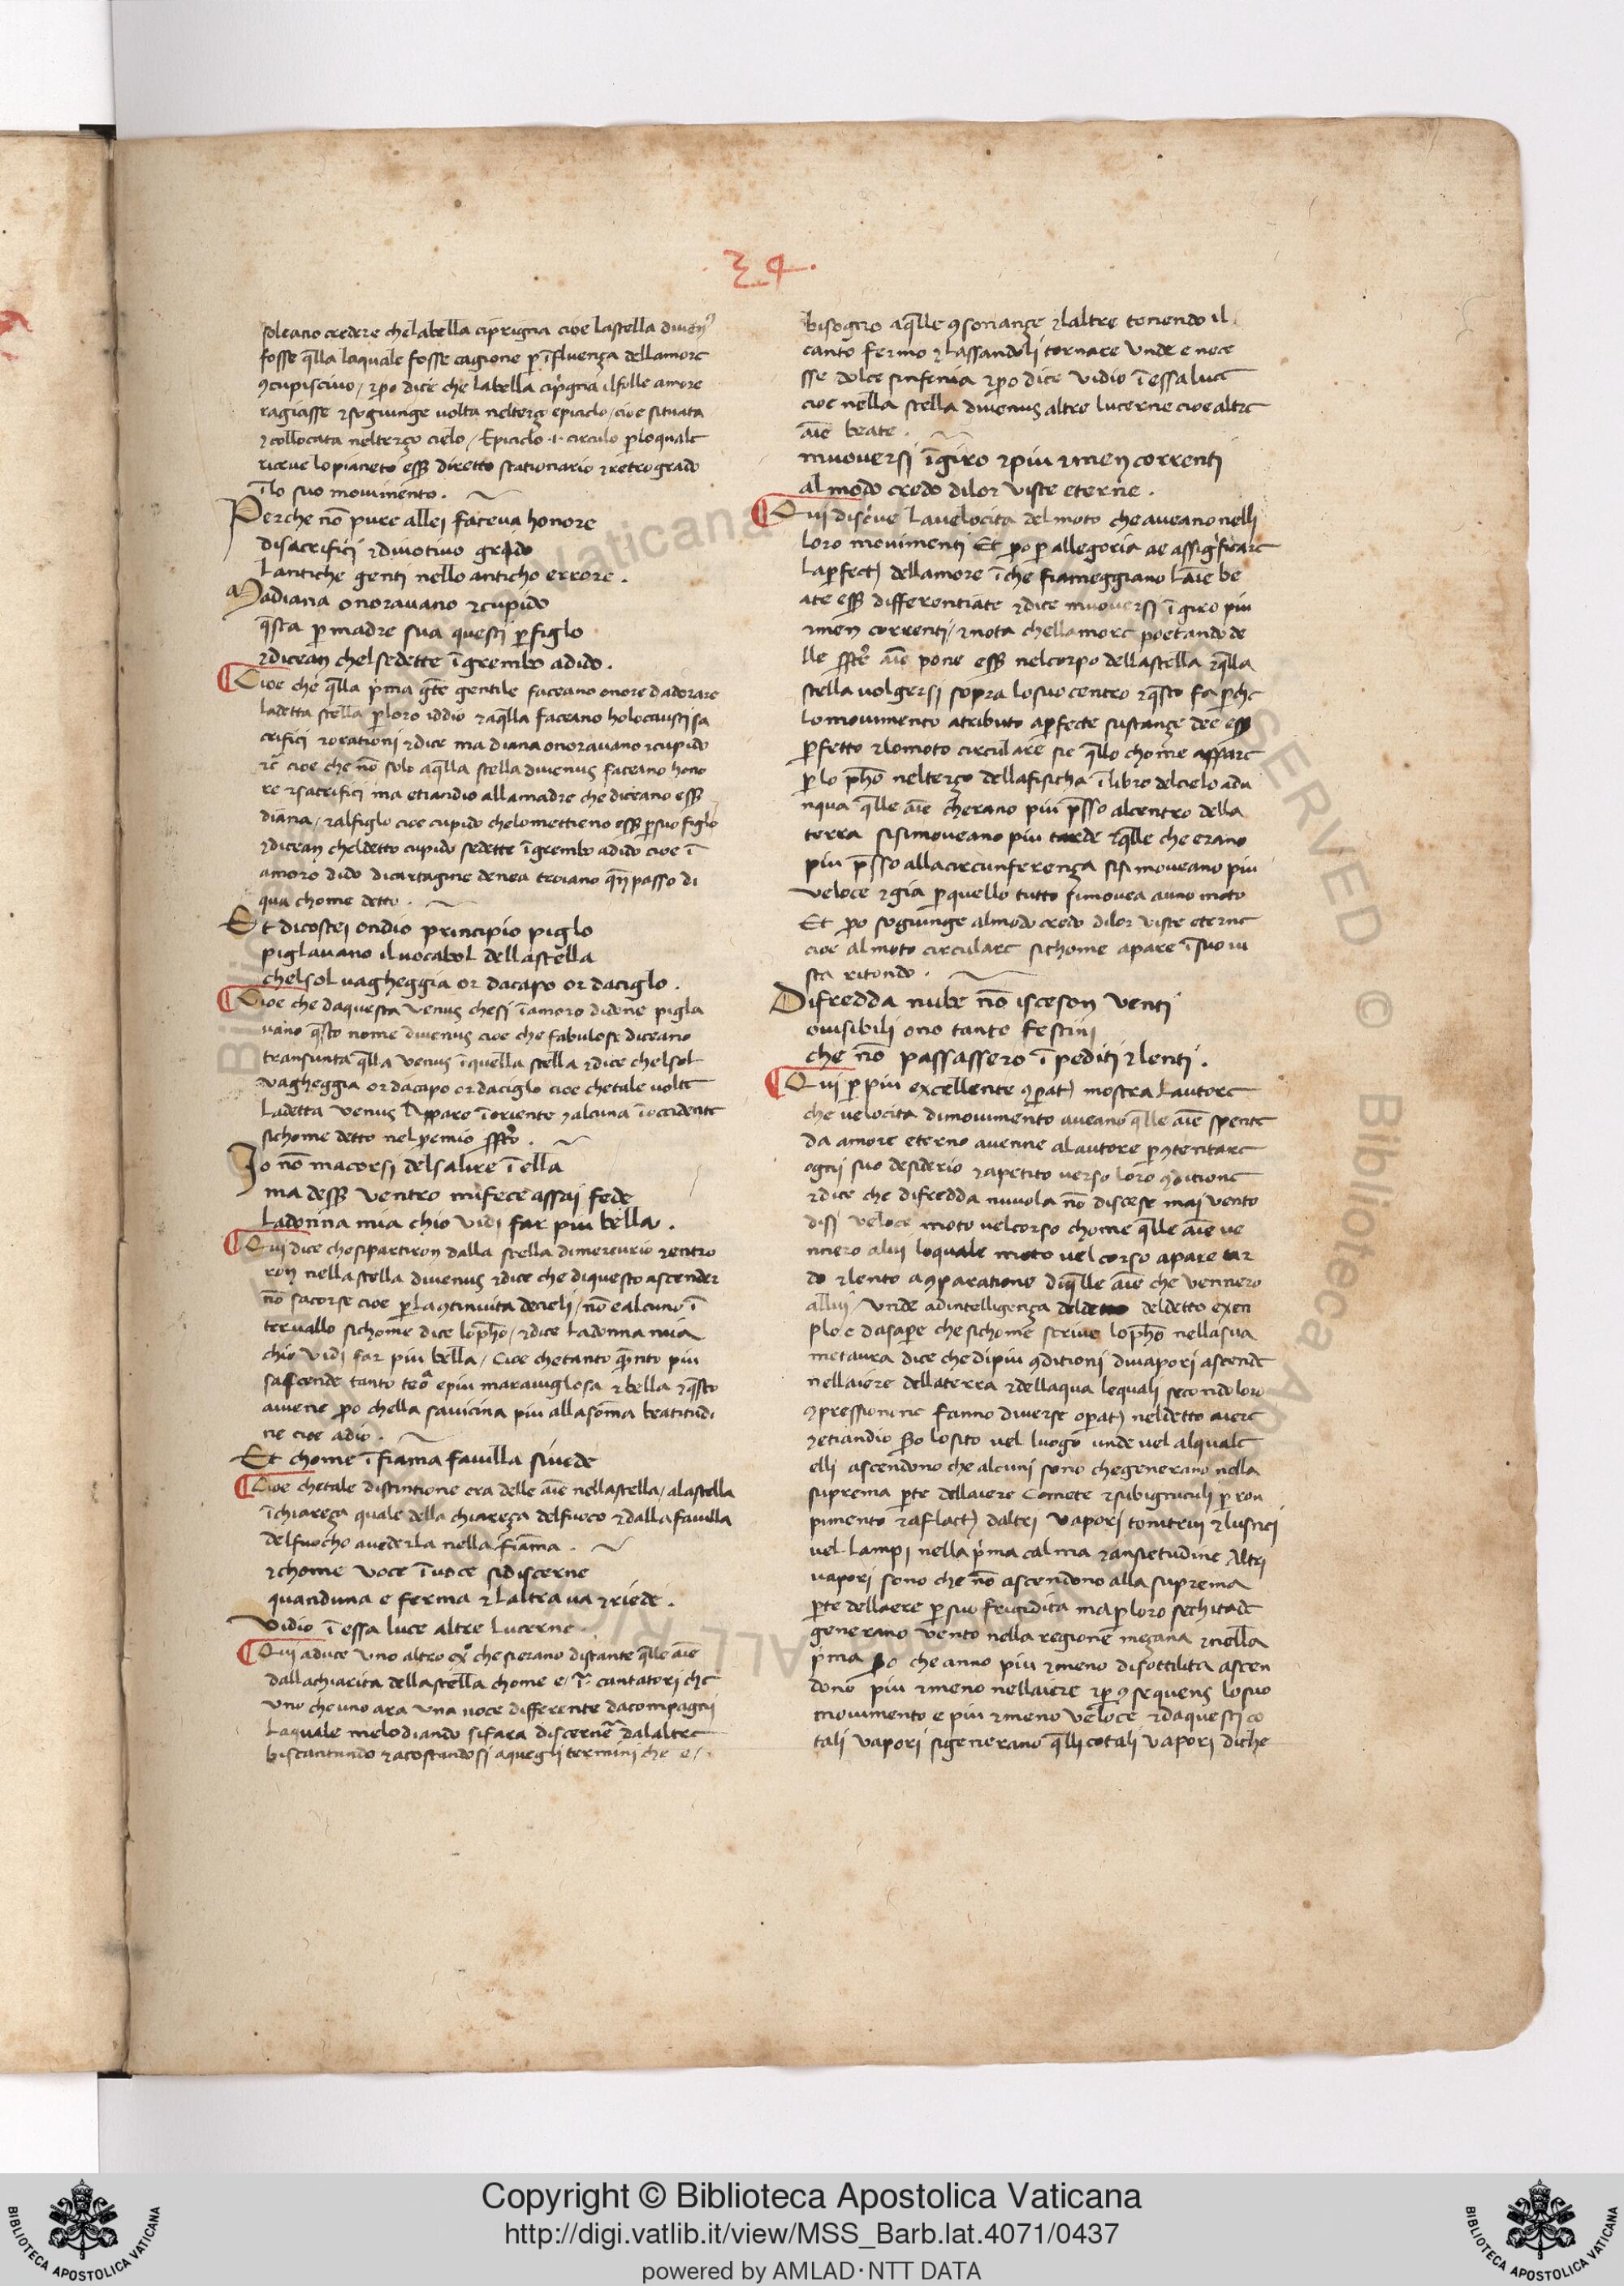 .34.
soleano credere chelabella ciprigna cioe lastella diuenꝰ
fosse q̄lla laquale fosse cagione ꝑ ī̄fluenza dellamore
ꝯcupisciuo / ꝛꝑo dice che labella cip̄gna ilfolle amore
ragiasse ꝛsogiunge uolta nelterzo epiciclo / cioe situata
ꝛcollocata nelterzo cielo / Epiciclo .i. circulo ꝑloquale
riceue lopianeto eſſ diretto stationario ꝛretrogrado
īlo suo mouimento .
Perche nō pure allei faceua honore
disacrifici ꝛdiuotiuo grado
Lantiche genti nello anticho errore .
Madiana onorauano ꝛcupido
q̄sta ꝑ madre sua questi ꝑ figlo
ꝛdicean chelsedette ī grembo adido .
Cioe che q̄lla p̄ma gēte gentile faceano onore dadorare
ladetta stella ꝑ loro iddio ꝛaq̄lla faceano holocausti sa
crifici ꝛorationi ꝛdice ma diana onorauano ꝛcupido
ꝛc̄ cioe che nō solo aq̄lla stella diuenus faceano hono
re ꝛsacrifici ma etiandio allamadre che diceano eſſ
diana / ꝛalfiglo cioe cupido chelometteno eſſ ꝑsuo figlo
ꝛdicean cheldetto cupido sedette ī grembo adido cioe ī
amoro dido dicartagine denea troiano qn̄ passo di
qua chome detto .
Et dicostei ondio principio piglo
piglauano iluocabol dellastella
chelsol uagheggia or dacapo or daciglo .
Cioe che daquesta Venus chesi īamoro didone pigla
uano q̄sto nome diuenus cioe che fabulose diceano
transunta q̄lla Venus ī quella stella ꝛdice chelsol
Vagheggia or dacapo or daciglo cioe chetale uolte
Ladetta Venus Appare ī oriente ꝛalcuna ī occidente
sichome detto nel ꝓemio sſto .
Io nō macorsi delsalire ī ella
ma deſſ Ventro mifece assai fede
Ladonna mia chio Vidi far piu bella .
Qui dice chesipartiron dalla stella dimercurio ꝛentro
ron nella stella diuenus ꝛdice che diquesto ascender
nō sacorse cioe ꝑ laꝯtinuita decieli / nō e alcuno ī
teruallo sichome dice loph̄o / ꝛdice Ladonna mia
chio Vidi far piu bella / Cioe chetanto q̄nto piu
sascende tanto teoa epiu marauiglosa ꝛbella ꝛq̄sto
auiene ꝑo chella sauicina piu allasōma beatitudi
ne cioe adio .
Et chome ī fiama fauilla siuede
Cioe chetale distintione era delle āīe nellastella / alastella
ī chiareza quale della chiareza delfuoco ꝛdalla fauilla
delfuocho auederla nella fiāma .
ꝛchome Voce ī uoce sidiscerne
quanduna e ferma ꝛlaltra ua ꝛriede .
Vidio ī essa luce altre Lucerne
Qui aduce Uno altro exº che sierano distante q̄lle āīe
dallachiarita dellastella chome e / ī cantatori che
Uno che uno ara Una uoce differente dacompagni
Laquale melodiando sifara discernē dalaltre
biscantando ꝛacostandosi aquegli termini che e /
bisogno aq̄lle ꝯsonanze ꝛlaltre tenendo il
canto fermo ꝛlassandoli tornare Unde e nece
sse dolce sinfenia ꝛꝑo dice Vidio ī essa luce
cioe nella stella diuenus altre lucerne cioe altre
āīe beate .
muouersi ī giro ꝛpiu ꝛmen correnti
al modo credo dilor Viste eterne .
Qui discīue Lauelocita delmoto che aueano nelli
loro mouimenti Et ꝑo ꝑ allegoria ae assignificare
Laꝑfectō dellamore ī che fiameggiano Lāīe be
ate eſſ differentiate ꝛdice muouersi ī giro piu
ꝛmen correnti / ꝛnota chellamore poetando de
lle sſte āīe pone eſſ nelcorpo dellastella ꝛq̄lla
stella uolgersi sopra losuo centro ꝛq̄sto fa ꝑche
Lomouimento atributo aꝑfecte sustanze dee eſſ
ꝑfetto ꝛlomoto circulare sie q̄llo chome appare
ꝑ lo ph̄o nelterzo dellafisicha ī libro delcielo adu
nqua q̄lle āīe cherano piu p̄sso alcentro della
terra sisimoueano piu tarde ꝛq̄lle che erano
piu p̄sso allacircunferenza sisimoueano piu
Veloce ꝛgia ꝑ quello tutto simouea auno moto
Et ꝑo sogiunge almodo credo dilor Viste eterne
cioe almoto circulare sichome apare ī suo ui
sta ritondo .
Difredda nube nō isceson Venti
ouisibili ono tanto festini
che nō passassero ī pediti ꝛlenti .
Qui ꝑ piu excellente ꝯꝑatō mostra Lautore
che velocita dimouimento aueano q̄lle āīe spente
da amore eterno auenne alautore ꝑ ꝯtentare
ogni suo desiderio ꝛapetito uerso loro ꝯditione
ꝛdice che difredda nuuola nō discese mai Vento
disi Veloce moto uelcorso chome q̄lle āīe ue
nnero alui loquale moto uel corso apare tar
do ꝛlento a ꝯparatione diq̄lle āīe che Vennero
allui / Unde adintelligenza deldetto deldetto exen
plo e dasaꝑe che sichome scriue loph̄o nellasua
metaura dice che dipiu ꝯditioni diuapori ascende
nellaiere dellaterra ꝛdellaqua lequali secondo loro
ꝯpressionone fanno diuerse oꝑatō neldetto aiere
ꝛetiandio ꝑo losito uel luogo unde uel alquale
elli ascendono che alcuni sono chegenerano nella
suprema ꝑte dellaiere Comete ꝛsubigniculi ꝑ ron
pimento ꝛaflactō daltri Vapori tonitrui ꝛlustrici
uel Lampi nella p̄ma calma ꝛansietudine Altri
uapori sono che nō ascendono alla suprema
ꝑte dellaere ꝑ suo frigidita ma ꝑ loro sechitade
generano Vento nella regione mezana ꝛnella
p̄ma ꝑo che anno piu ꝛmeno disottilita ascen
dono piu ꝛmeno nellaiere ꝛꝑ ꝯsequens losuo
mouimento e piu ꝛmeno Veloce ꝛdaquesti co
tali Vapori sigenerano q̄lli cotali Vapori diche
Copyright © Biblioteca Apostolica Vaticana
http://digi.vatlib.it/view/MSS_Barb.lat.4071/0437
powered by AMLAD·NTT DATA
BIBLIOTECA APOSTOLICA VATICANA
BIBLIOTECA APOSTOLICA VATICANA